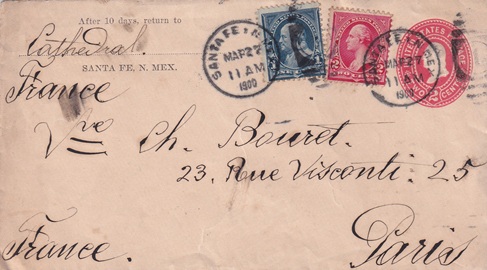 After 10 days, return to
Cathedral
SANTA FE, N. MEX.
SANTA FE N.
MAR 27
11 AM
1900
2
SANTA FE
MAR 27
11 AM
1900
UNITED STATES
2 CENTS
France
Vve Ch. Bouret.
23, Rue Visconti. 25
Paris
France.